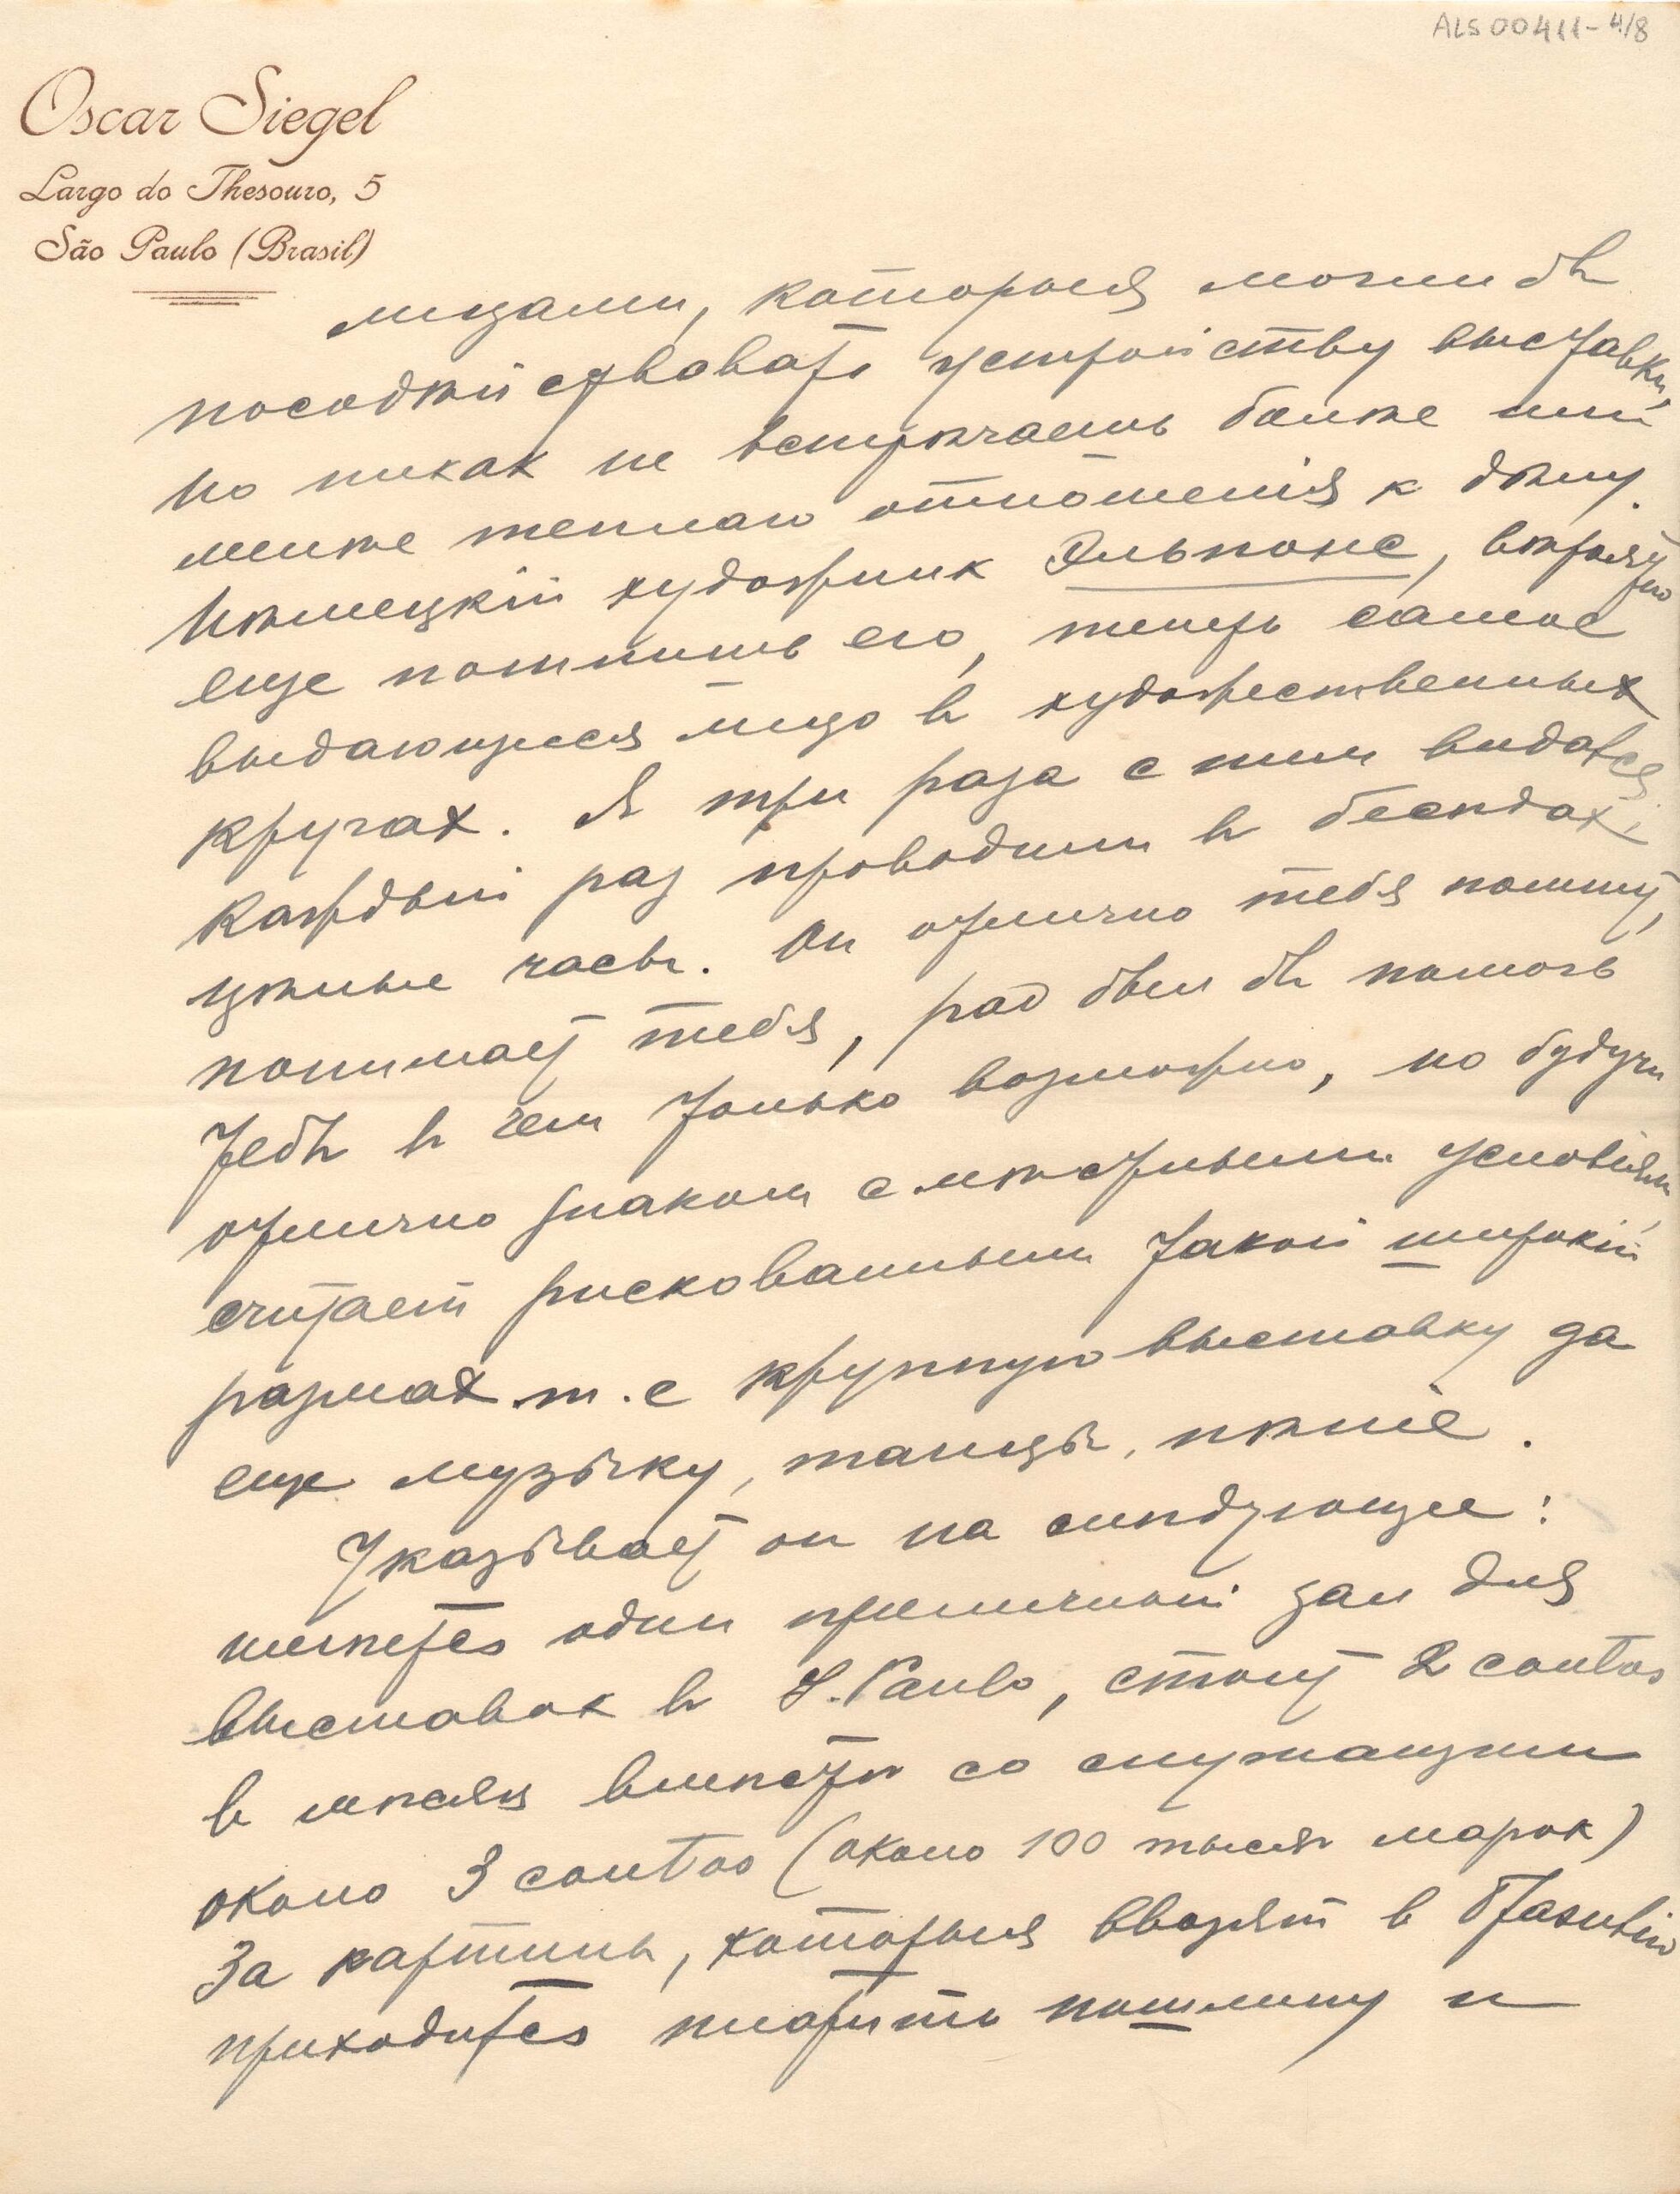 ALS 00411-4/8
Oscar Siegel
Largo do Thesouro, 5
São Paulo (Brasil)
лицами, которыя могли бы
посодѣйствовать устройству выставки,
но никак не встрѣчаешь болѣе или
менѣе теплаго отношенія к дѣлу.
Нѣмецкій художник Эльпонс, вѣроятно
еще помнишь его, теперь самое
выдающееся лицо в художественных
кругах. Я три раза с ним видался,
каждый раз проводили в бесѣдах
цѣлые часы. Он отлично тебя помнит,
понимает тебя, рад был бы помочь
тебѣ в чем только возможно, но будучи
отлично знаком с мѣстными условіями
считает рискованным такой широкій
размах т.е крупную выставку да
еще музыку, танцы, пѣніе.
Указывает он на слѣдующее:
имѣется один приличный зал для
выставок в S. Paulo, стоит 2 contos
в мѣсяц вмѣстѣ со служащими
около 3 contos (около 100 тысяч марок)
За картины, которыя ввозят в Бразилію
приходится платить пошлину и